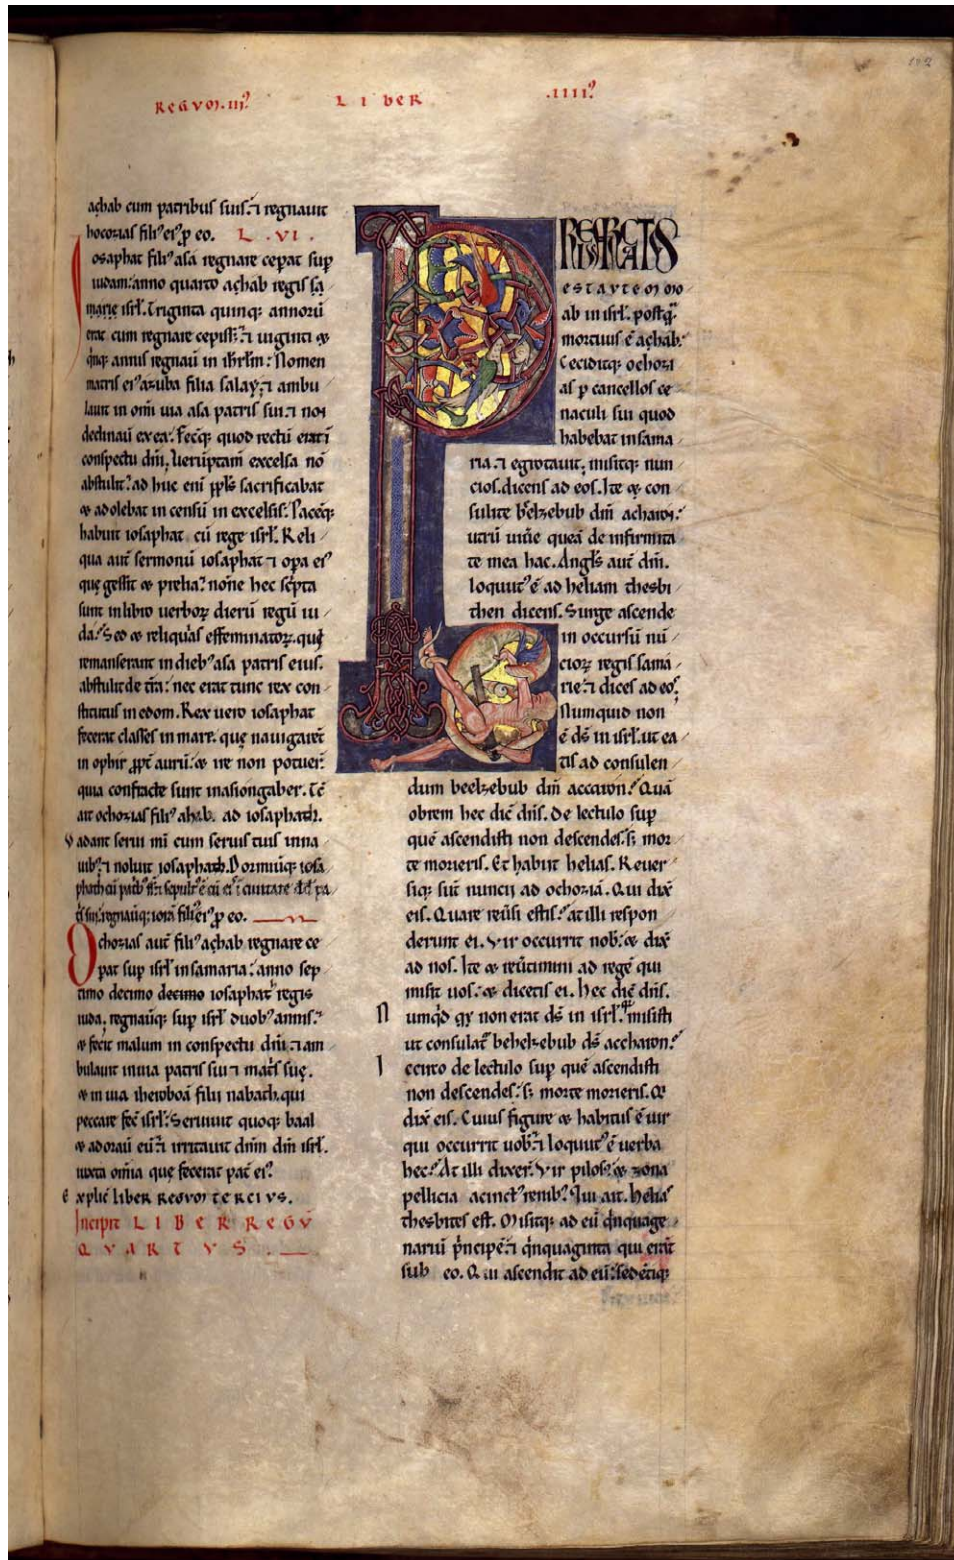 REGVM.III⁹ LIBER .IIII⁹
102
achab cum patribus suis.⁊ regnauit
hocozias fili⁹ ei⁹ ꝑ eo. L.VI.
Iosaphat fili⁹ asa regnare ceperat sup
iudam: anno quarto achab regis sa
marie isrl̄. Triginta quinq; annorū
erat cum regnare cepiss&.⁊ uiginti &
q̇nq; annis regnauī in ihrl̄m: Nomen
matris ei⁹ azuba filia salay.⁊ ambu
lauit in om̄i uia asa patris sui.⁊ non
declinauī ex ea. Fecitq; quod rectū erat ī
conspectu dn̄i. Ueruptam̄ excelsa nō
abstulit: ad huc eni ppl̄s sacrificabat
& adolebat in censū in excelsis. Pacēq;
habuit iosaphat cū rege isrl̄. Reli
qua aut̄ sermonū iosaphat ⁊ opa ei⁹
quę gessit & prelia: none hec sc̄pta
sunt in libro uerboꝝ dierū regū iu
da: Sed & reliq̄as effeminatoꝝ. qui
remanserant in dieb⁹ asa patris eius.
abstulit de t̄ra: nec erat tunc rex con
stitutus in edom. Rex uero iosaphat
fecerat classes in mari. quę nauigarēt
in ophir ꝓpt̄ aurū: & ire non potuer̄
quia confracte sunt in asiongaber. Tē
ait ochozias fili⁹ ahab. ad iosaphath.
Vadant serui mī cum seruis tuis in na
uib⁹.⁊ noluit iosaphath. Dormiuitq; iosa
phath cū patrib⁹ s̄.⁊ sepult⁹ ē cū ei⁹ ī ciuitate dd̄ pa
t̄s sui. regnauitq; iorā fili⁹ ei⁹ ꝑ eo.
Ochozias aut̄ fili⁹ achab regnare ce
perat sup isrl̄ in samaria: anno sep
timo decimo decimo iosaphat regis
iuda. regnauitq; sup isrl̄ duob⁹ annis.
& fecit malum in conspectu dn̄i.⁊ am
bulauit in uia patris sui ⁊ mat̄s suę.
& in uia iheroboā filii nabath. qui
peccare fec̄ isrl̄: Seruiuit quoq; baal
& adorauī eū.⁊ irritauit dn̄m dm̄ isrl̄.
iuxta om̄ia quę fecerat pat̄ ei⁹.
Explic̄ LIBER REGVM TERCIVS.
Incipit LIBER REGV̄
QVARTVS.
PREVARICATVS
EST AVTEM MO
ab in isrl̄. postq̄
mortuus ē achab.
Ceciditq; ochozi
as ꝑ cancellos ce
naculi sui quod
habebat in sama
ria.⁊ egrotauit. misitq; nun
cios. dicens ad eos. Ite & con
sulite belzebub dm̄ acharon:
utrū uiuē queā de infirmita
te mea hac. Angl̄s aut̄ dn̄i.
loquut⁹ ē ad heliam thesbi
then dicens. Surge ascende
in occursū nū
cioꝝ regis sama
rie.⁊ dices ad eos.
Numquid non
ē ds̄ in isrl̄. ut ea
tis ad consulen
dum beelzebub dm̄ accaron: Quā
obrem hec dic̄ dn̄s. De lectulo sup
quē ascendisti non descendes. s; mor
te morieris. Et habiit helias. Reuer
siq; sūt nuncij ad ochoziā. Qui dix̄
eis. Quare reūsi estis: at illi respon
derunt ei. Vir occurrit nob̄. & dix̄
ad nos. Ite & reūtimini ad regē qui
misit uos: & dicetis ei. Hec dic̄ dn̄s.
Numq̇d q̇ non erat ds̄ in isrl̄. misisti
ut consulat̄ behelzebub ds̄ accharon:
Iccirco de lectulo sup quē ascendisti
non descendes: s; morte morieris. Q
dix̄ eis. Cuius figure & habitus ē uir
qui occurrit uob̄.⁊ loquut⁹ ē uerba
hec: At illi dixer̄. Vir pilos⁹. & zona
pellicia accinct⁹ renib⁹. Qui ait. helias
thesbites est. Misitq; ad eū q̇nquage
nariū p̄ncipē.⁊ q̇nquaginta qui erāt
sub eo. Qui ascendit ad eū: sedētiq;